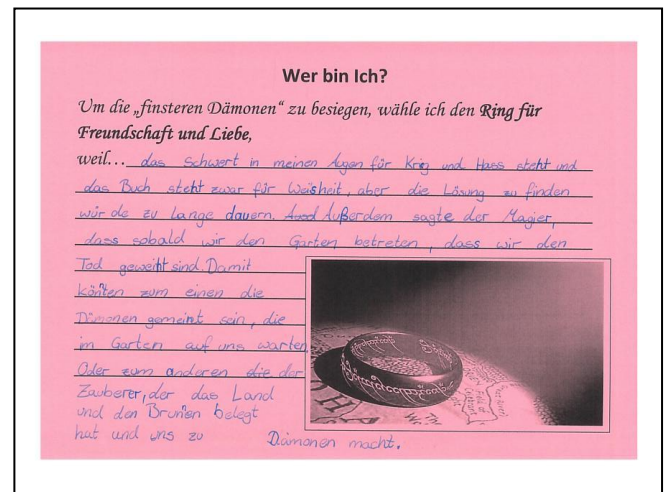 Wer bin Ich?
Um die „finsteren Dämonen“ zu besiegen, wähle ich den Ring für
Freundschaft und Liebe,
weil... das Schwert in meinen Augen für Krig und Hass steht und
das Buch steht zwar für Weisheit, aber die Lösung zu finden
würde zu lange dauern. Außerdem sagte der Magier,
dass sobald wir den Garten betreten, dass wir den
Tod geweiht sind. Damit
könten zum einen die
Dämonen gemeint sein, die
im Garten auf uns warten
Oder zum anderen die der
Zauberer, der das Land
und den Brunen belegt
hat und uns zu Dämonen macht.